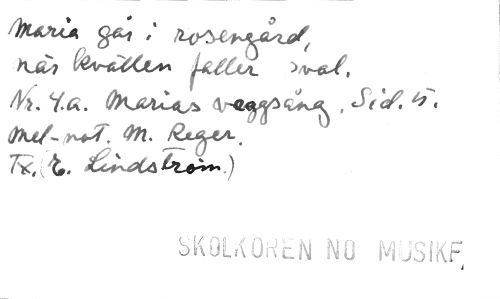 Maria går i rosengård,
när kvällen faller sval.
Nr. 4.a. Marias vaggsång. Sid. 5.
Mel-not. M. Reger.
Tx. (E. Lindström.)
SKOLKÖREN NO MUSIKF.